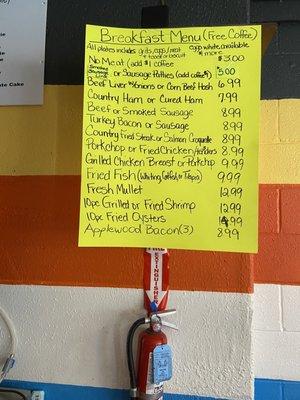 Breakfast Menu (Free Coffee)
All plates includes grits/eggs/meat egg white available
+ toast or biscuit $1 more
No Meat (add $1 coffee $3.00
or Sausage Patties (add coffee $1) 5.00
Beef Liver w/Onions or Corn Beef Hash 6.99
Country Ham or Cured Ham 7.99
Beef or Smoked Sausage 8.99
Turkey Bacon or Sausage 8.99
Country Fried Steak or Salmon Croquette 8.99
Porkchop or Fried Chicken/Tenders 8.99
Grilled Chicken Breast or Porkchop 9.99
Fried Fish (Whiting Catfish or Tilapia) 9.99
Fresh Mullet 12.99
10pc Grilled or Fried Shrimp 12.99
10pc Fried Oysters 14.99
Applewood Bacon (3) 8.99
FIRE
EXTINGUISHER
Cake